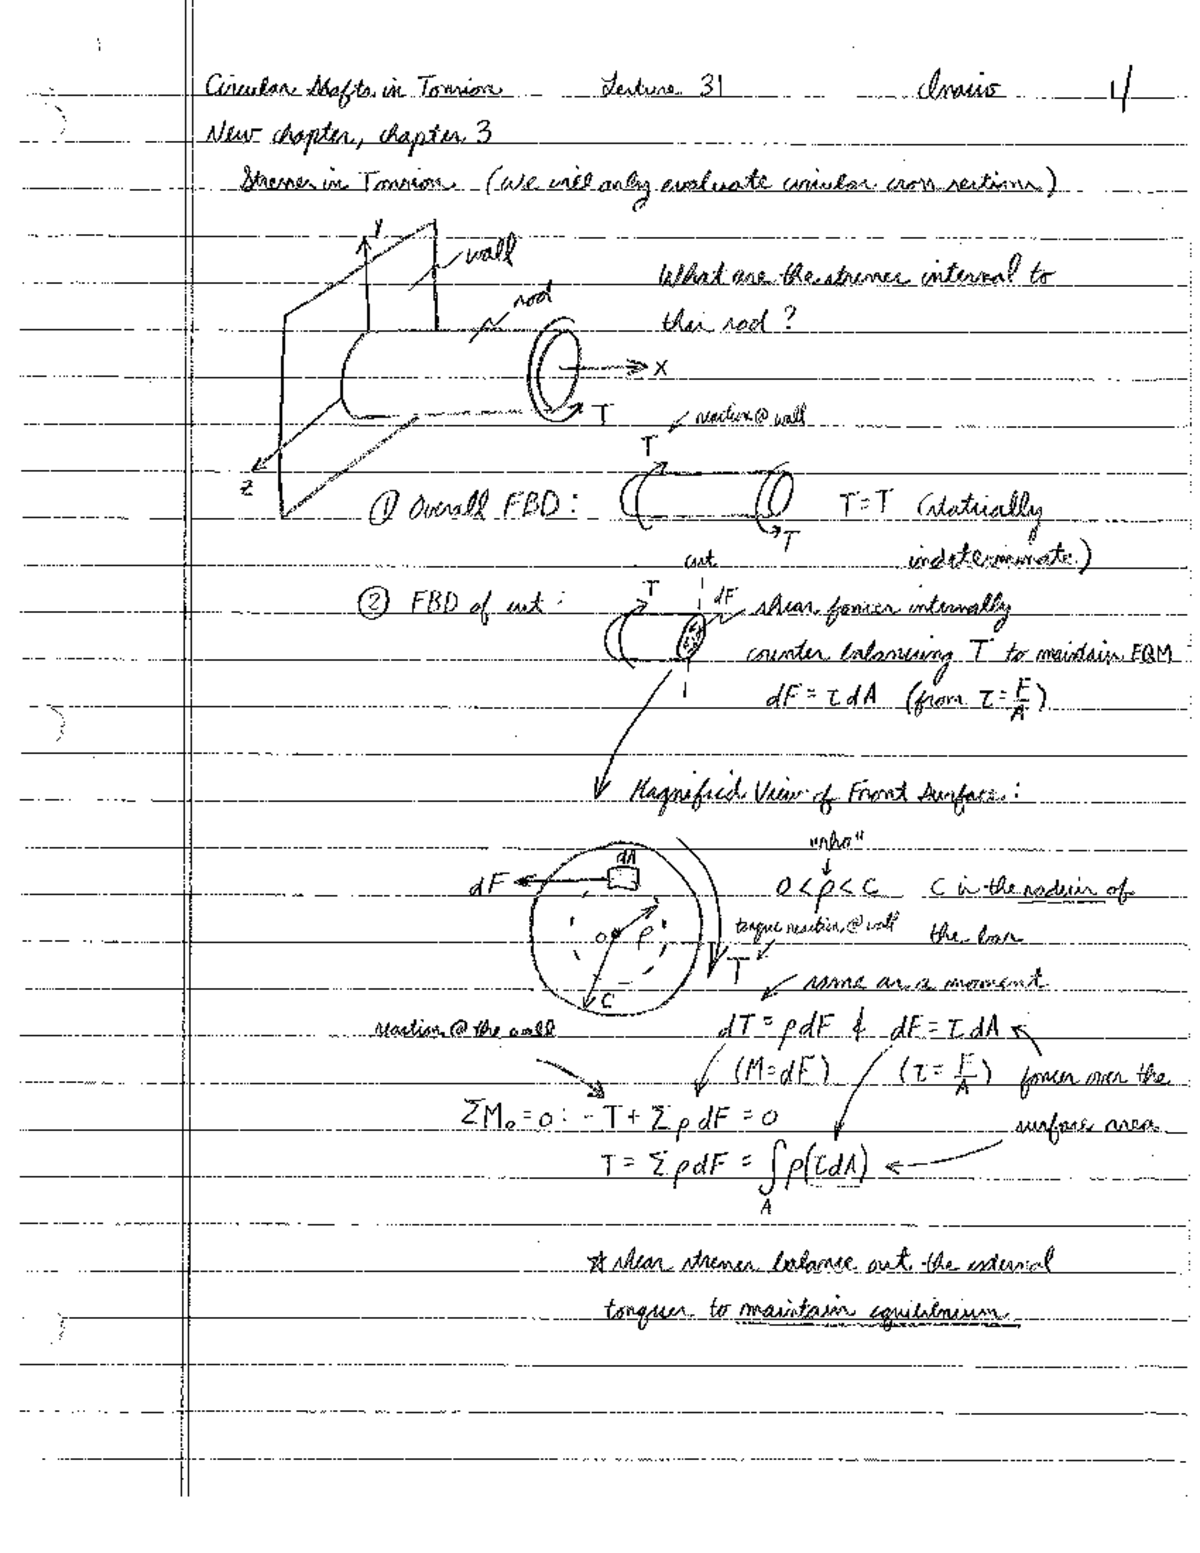 Circular Shafts in Torsion Lecture 31 1/
New chapter, chapter 3
Stresses in Torsion (We will only evaluate circular cross sections)
y
wall
rod
What are the stresses internal to
this rod?
x
T
z
reaction @ wall
T
① Overall FBD: T=T (statically
T
indeterminate)
cut
② FBD of cut: T dF shear forces internally
counter balancing T to maintain EQM
dF = τdA (from τ = F/A)
Magnified View of Front Surface:
"rho"
dA
dF 0 < ρ < C C is the radius of
the bar
torque reaction @ wall
o ρ T
C
same as a moment
reaction @ the wall dT = ρdF & dF = τdA
(M=dF) (τ = F/A) forces over the
surface area
ΣMo = 0: -T + Σ ρ dF = 0
T = Σ ρdF = ∫A ρ(τdA)
* shear stresses balance out the external
torques to maintain equilibrium